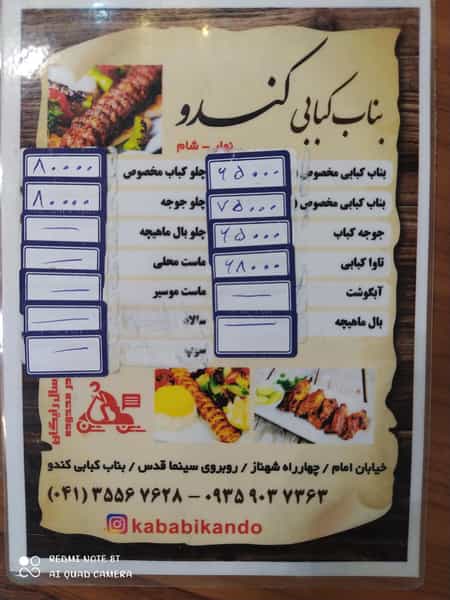 بناب کبابی کندو
نهار - شام
بناب کبابی مخصوص ۶۵۰۰۰
چلو کباب مخصوص ۸۰۰۰۰
بناب کبابی مخصوص ۷۵۰۰۰
چلو جوجه ۸۰۰۰۰
جوجه کباب ۶۵۰۰۰
چلو بال ماهیچه —
تاوا کبابی ۶۸۰۰۰
ماست محلی —
آبگوشت —
ماست موسیر —
بال ماهیچه —
سالاد —
سوپ —
ارسال رایگان
در محدوده
خیابان امام / چهارراه شهناز / روبروی سینما قدس / بناب کبابی کندو
(۰۴۱) ۳۵۵۶ ۷۶۲۸ - ۰۹۳۵ ۹۰۳ ۷۳۶۳
kababikando
REDMI NOTE 8T
AI QUAD CAMERA